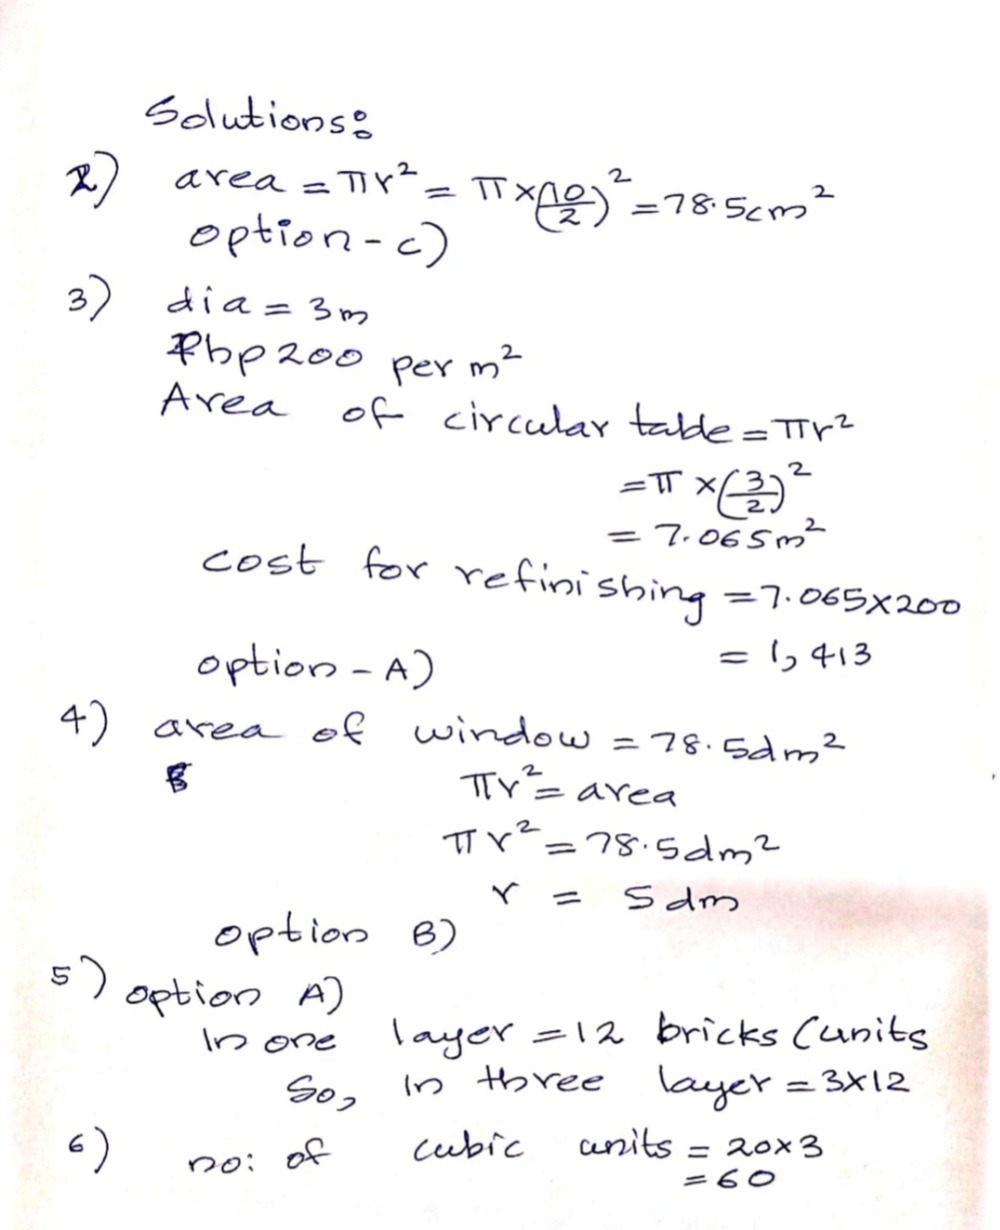 Solutions:
2) area = πr² = π×(10/2)² = 78.5cm²
option-c)
3) dia = 3m
Php200 per m²
Area of circular table = πr²
= π×(3/2)²
= 7.065m²
cost for refinishing = 7.065×200
= 1,413
option-A)
4) area of window = 78.5dm²
πr² = area
πr² = 78.5dm²
r = 5dm
option B)
5) option A)
In one layer = 12 bricks (units
So, In three layer = 3×12
6) no: of cubic units = 20×3
= 60